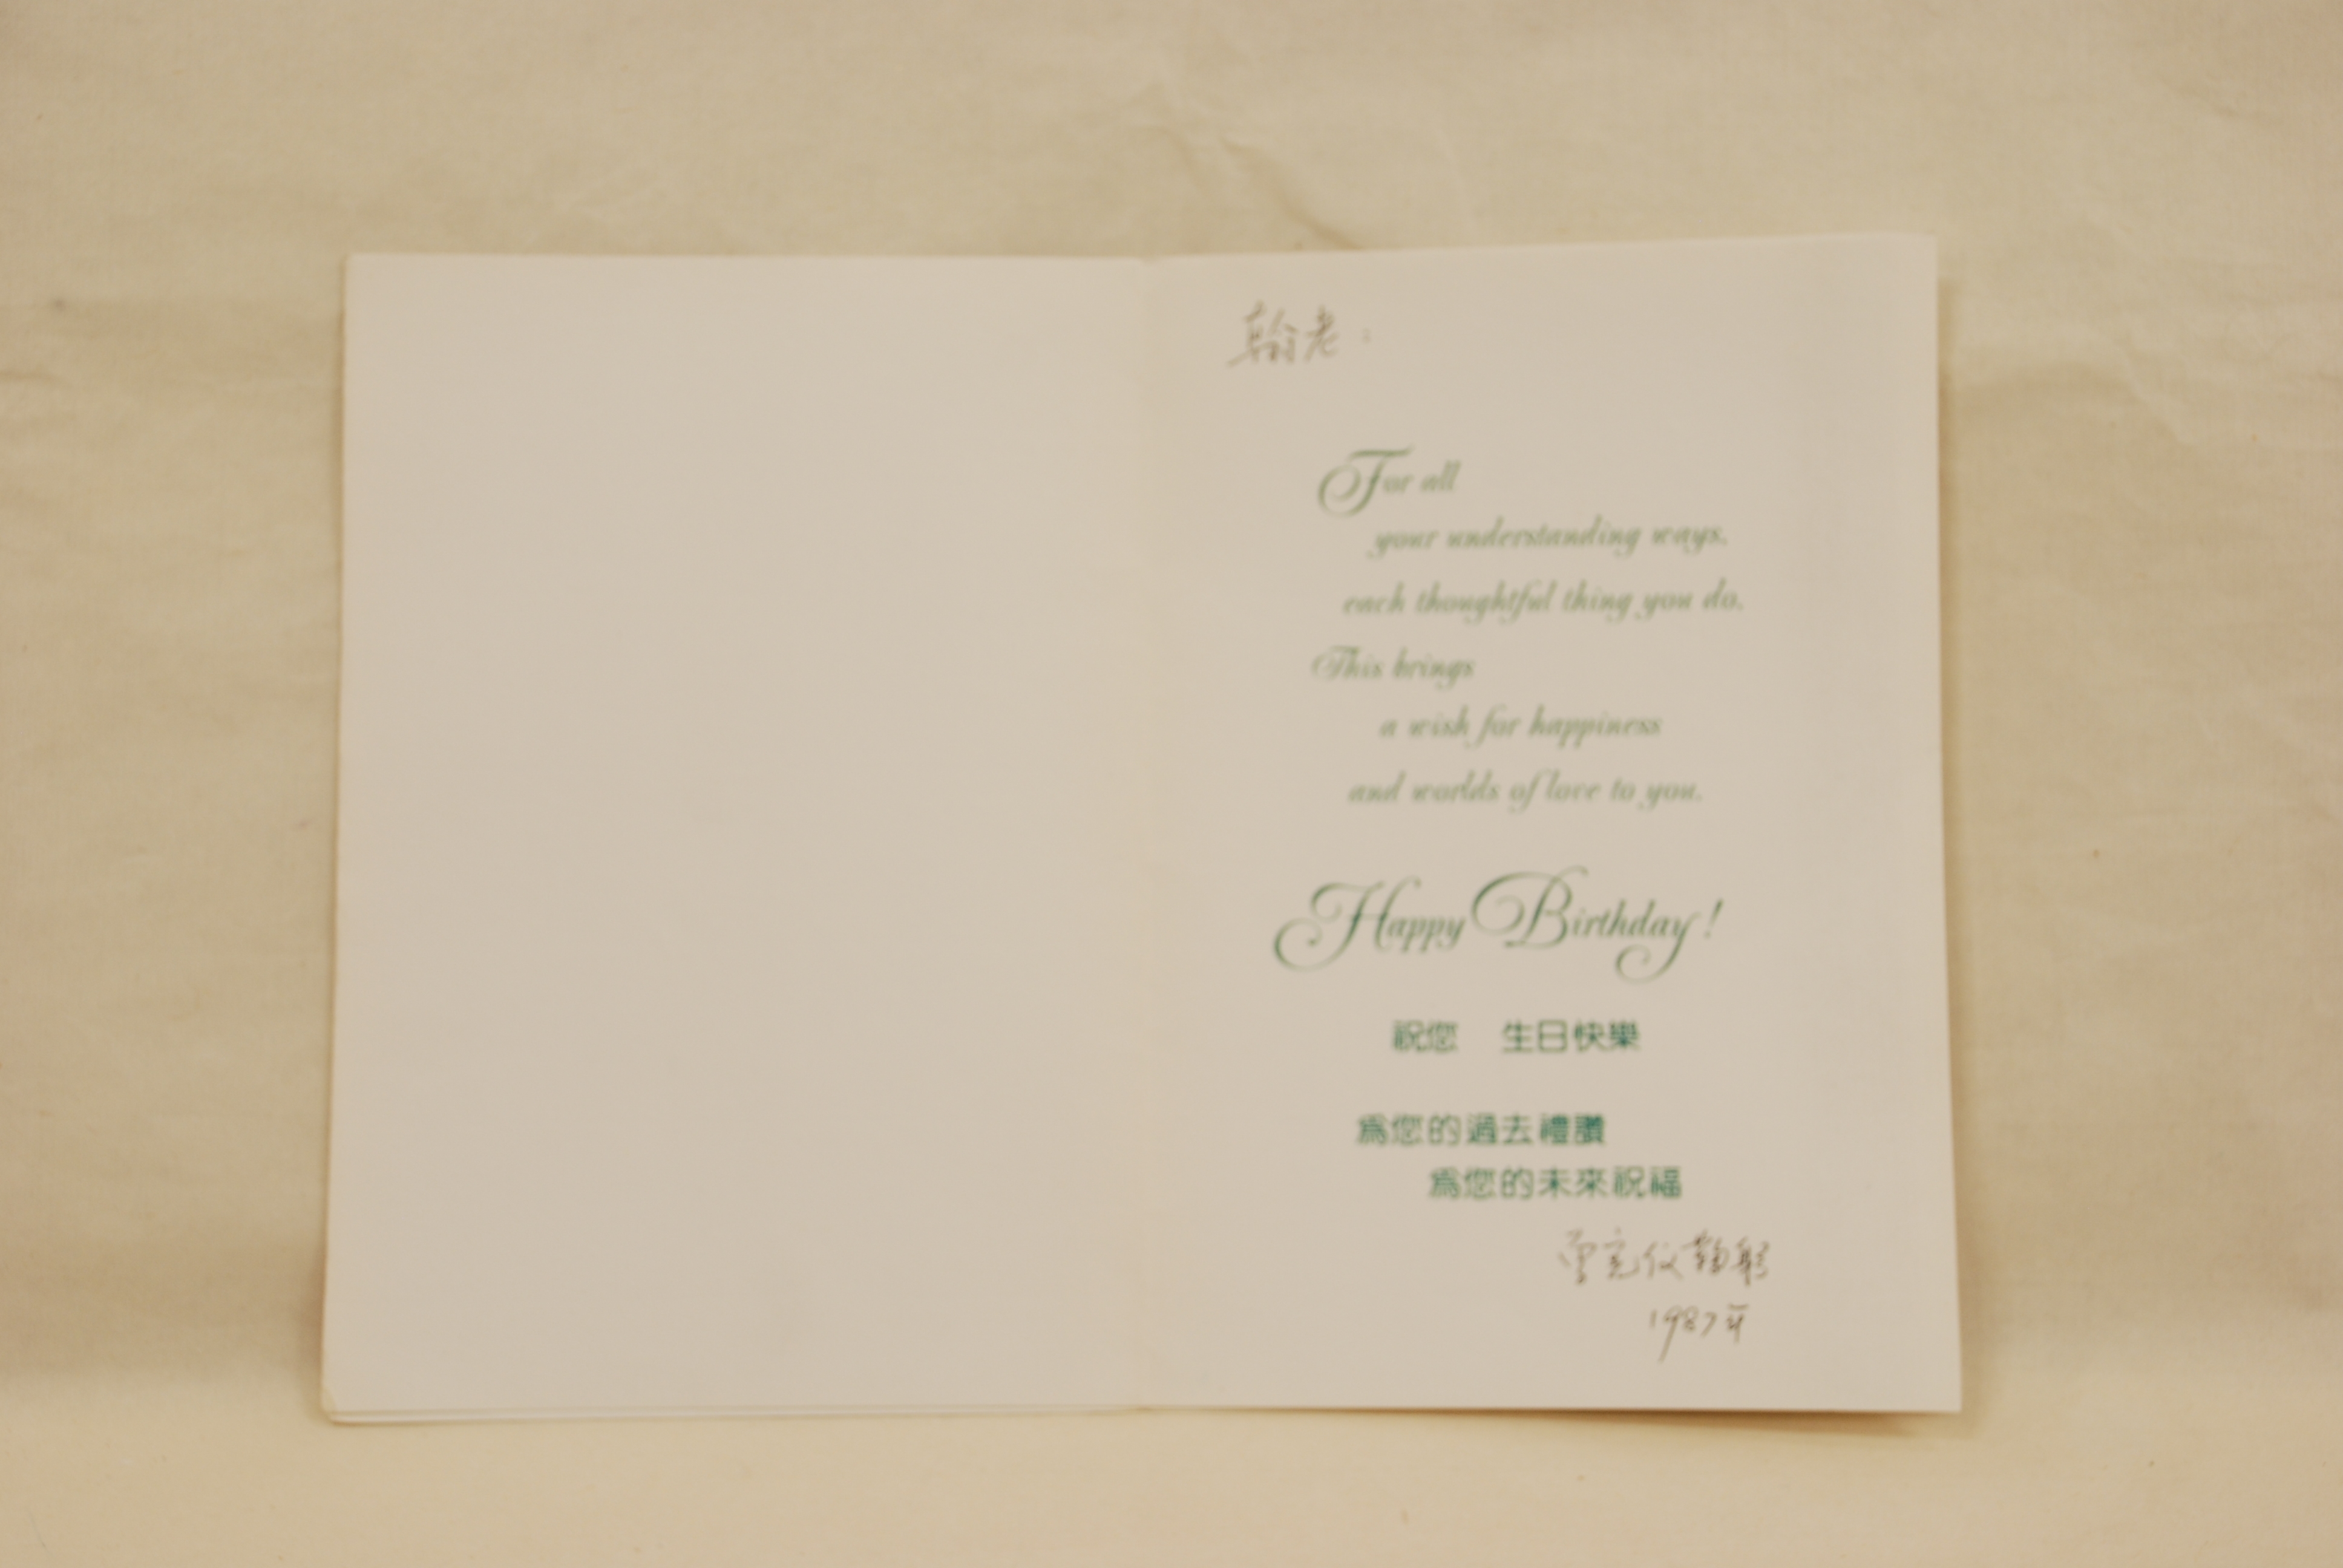 翰老：
For all
your understanding ways,
each thoughtful thing you do,
This brings
a wish for happiness
and worlds of love to you.
Happy Birthday!
祝您　生日快樂
為您的過去禮讚
為您的未來祝福
曾克仪鞠躬
1987年